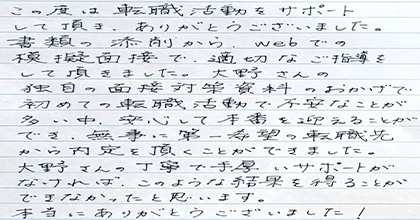 この度は転職活動をサポート
して頂き、ありがとうございました。
書類の添削から、webでの
模擬面接で、適切なご指導を
して頂きました。大野さんの
独自の面接対策資料のおかげで
初めての転職活動で不安なことが
多い中、安心して本番を迎えることが
でき、無事に第一希望の転職先
から内定を頂くことができました。
大野さんの丁寧で手厚いサポートが
なければ、このような結果を得ることが
できなかったと思います。
本当にありがとうございました！